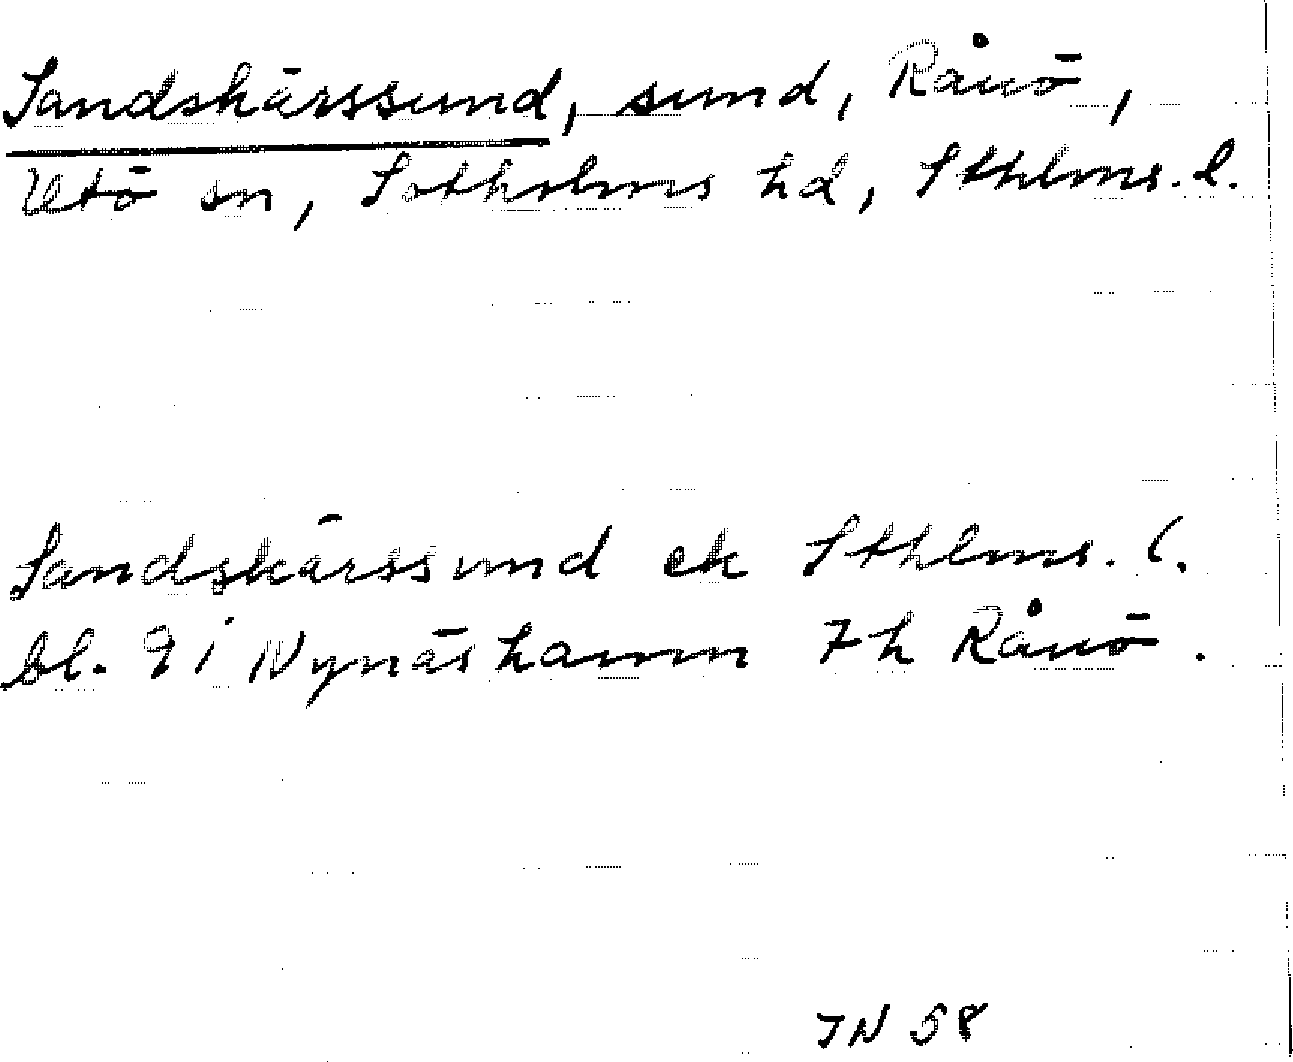 Sandskärssund, sund, Rånö,
Utö sn, Sotholms hd, Sthlms. l.
Sandskärssund ek Sthlms. l.
bl. 9 i Nynäshamn 7 h Rånö.
JN 58